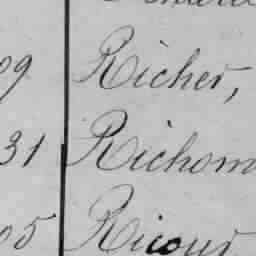 09 Richer,
31 Richom
05 Ricour